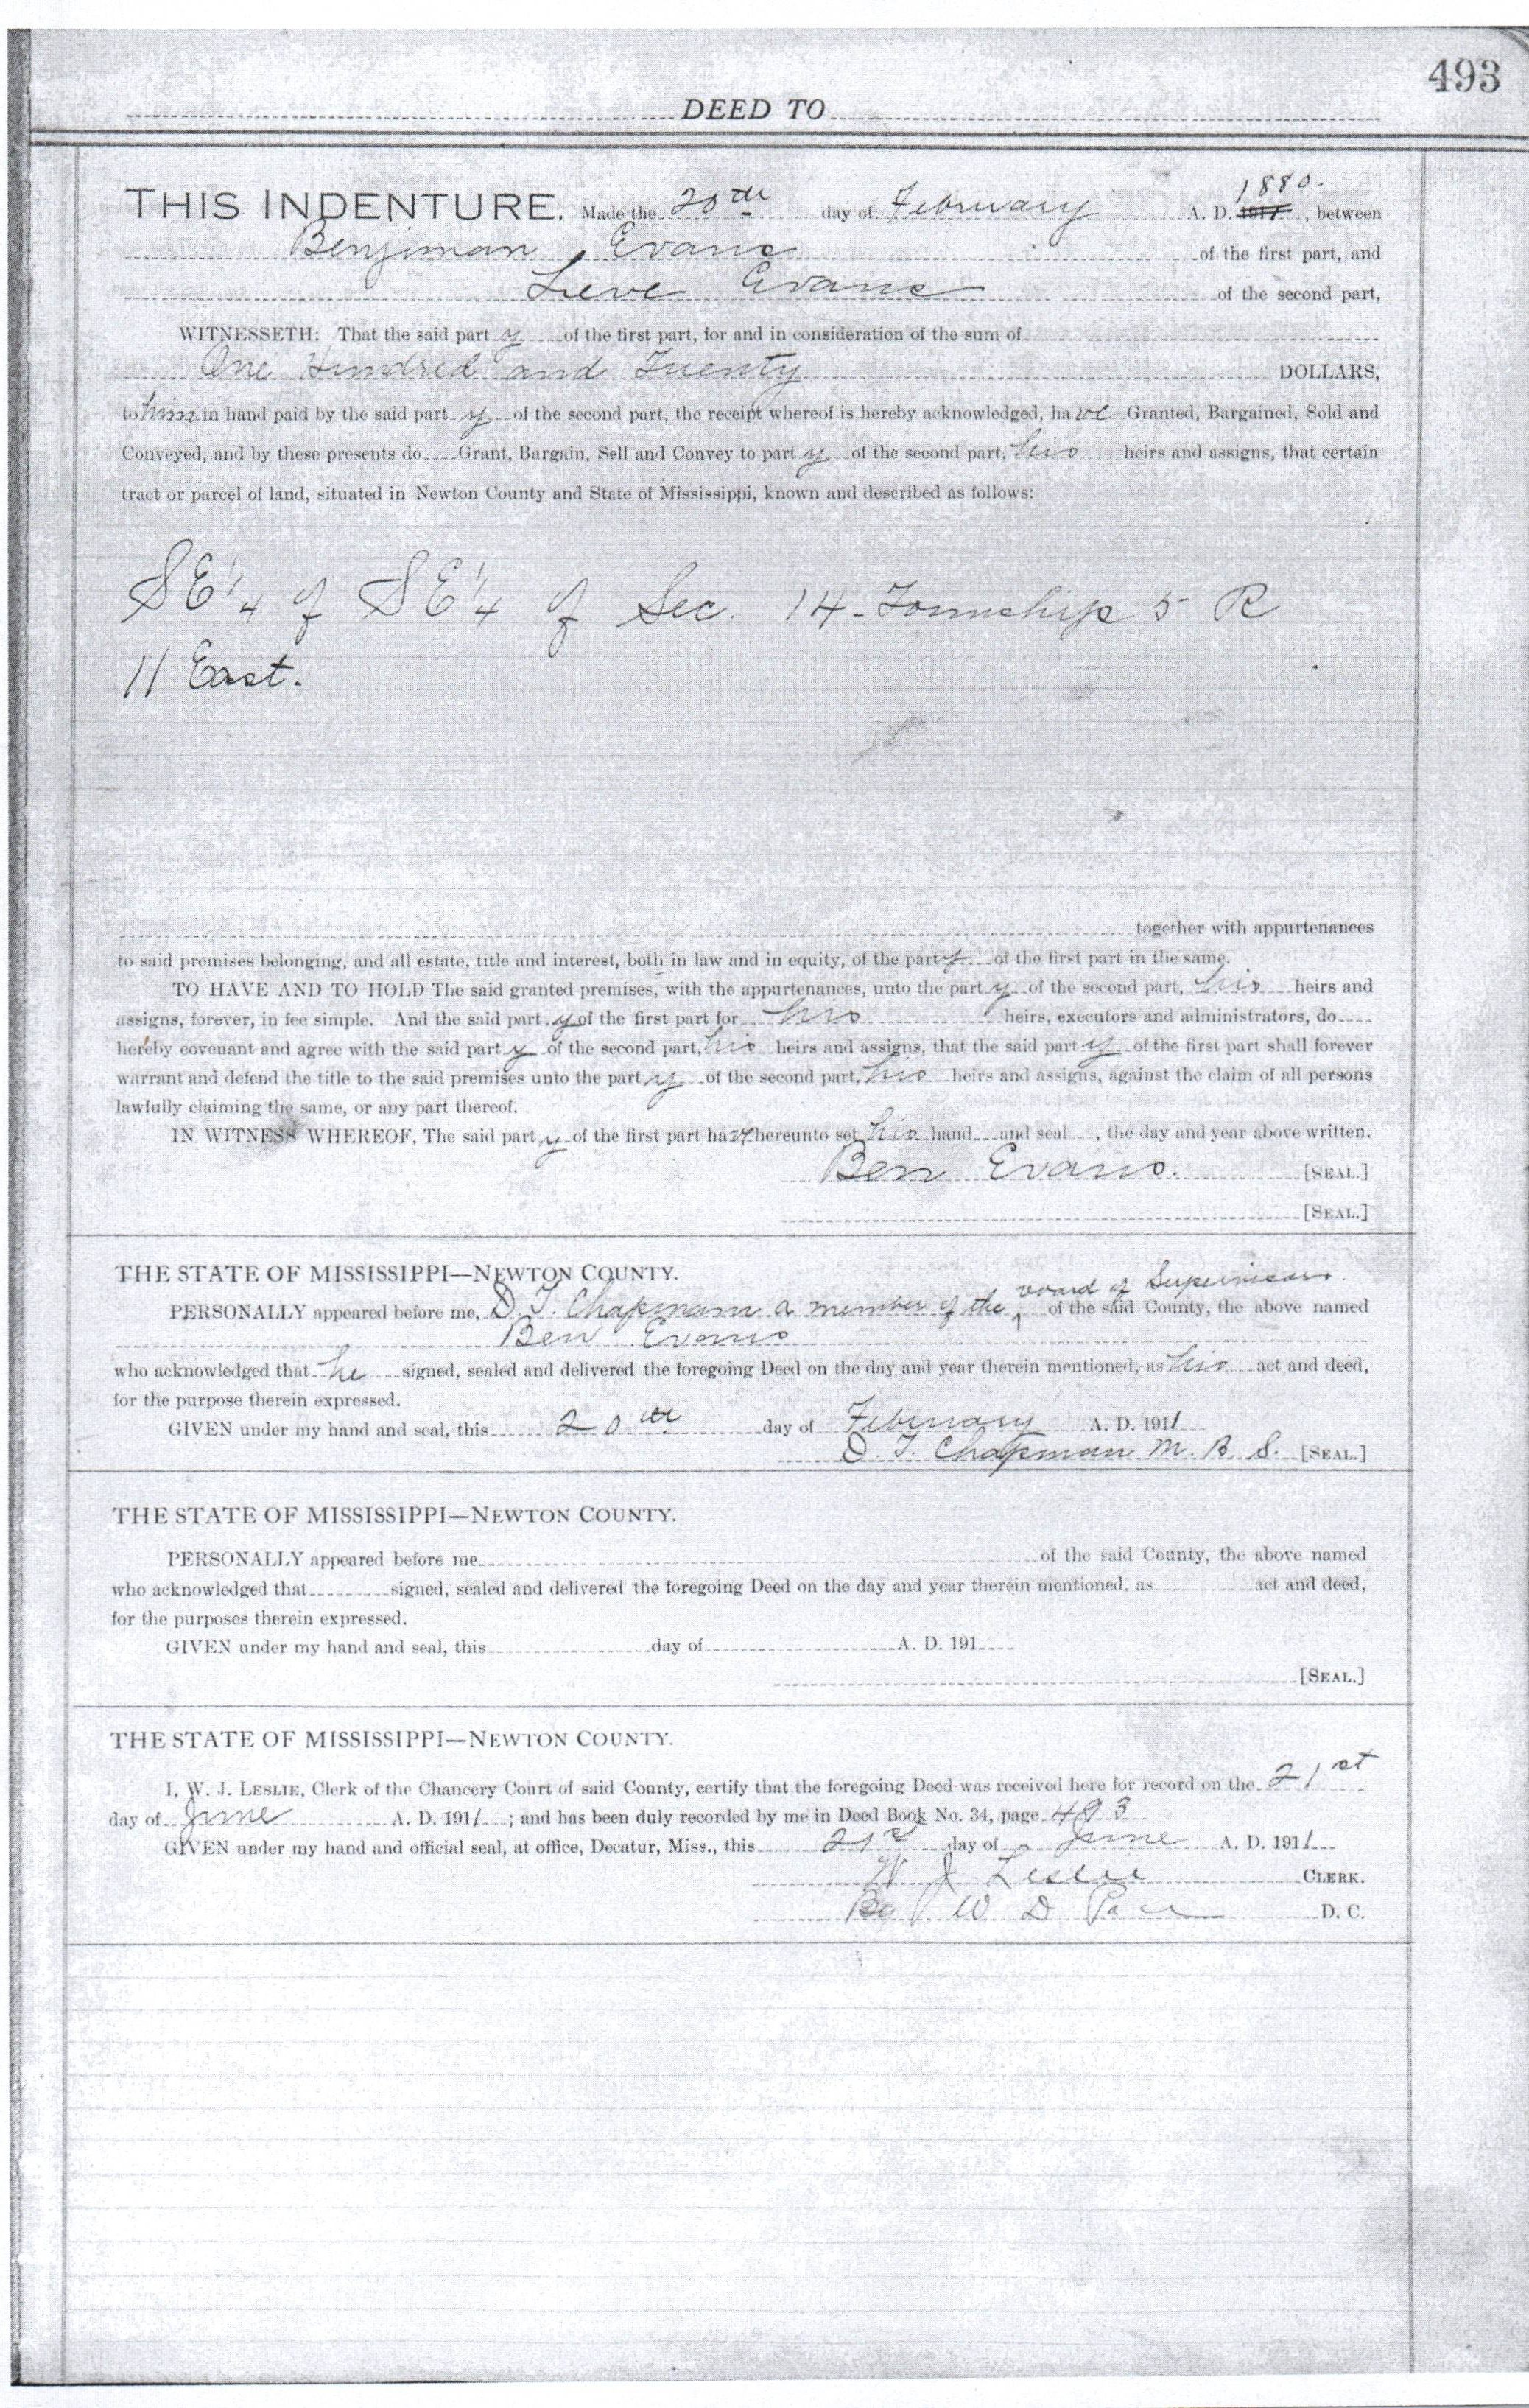 493
DEED TO
THIS INDENTURE, Made the 20th day of February A. D. 1911 1880. , between
Benjiman Evans of the first part, and
Lieve Evans of the second part,
WITNESSETH: That the said part y of the first part, for and in consideration of the sum of
One Hundred and Twenty DOLLARS,
to him in hand paid by the said part y of the second part, the receipt whereof is hereby acknowledged, ha ve Granted, Bargained, Sold and
Conveyed, and by these presents do Grant, Bargain, Sell and Convey to part y of the second part, his heirs and assigns, that certain
tract or parcel of land, situated in Newton County and State of Mississippi, known and described as follows:
SE 1/4 of SE 1/4 of Sec. 14 - Township 5 R
11 East.
together with appurtenances
to said premises belonging, and all estate, title and interest, both in law and in equity, of the part y of the first part in the same.
TO HAVE AND TO HOLD The said granted premises, with the appurtenances, unto the part y of the second part, his heirs and
assigns, forever, in fee simple. And the said part y of the first part for his heirs, executors and administrators, do
hereby covenant and agree with the said part y of the second part, his heirs and assigns, that the said part y of the first part shall forever
warrant and defend the title to the said premises unto the part y of the second part, his heirs and assigns, against the claim of all persons
lawfully claiming the same, or any part thereof.
IN WITNESS WHEREOF, The said part y of the first part ha ve hereunto set his hand and seal , the day and year above written.
Ben Evans. [SEAL.]
[SEAL.]
THE STATE OF MISSISSIPPI—NEWTON COUNTY.
board of Supervisors.
PERSONALLY appeared before me, D. T. Chapman a member of the of the said County, the above named
Ben Evans
who acknowledged that he signed, sealed and delivered the foregoing Deed on the day and year therein mentioned, as his act and deed,
for the purpose therein expressed.
GIVEN under my hand and seal, this 20th day of February A. D. 1911
D. T. Chapman M. B. S. [SEAL.]
THE STATE OF MISSISSIPPI—NEWTON COUNTY.
PERSONALLY appeared before me of the said County, the above named
who acknowledged that signed, sealed and delivered the foregoing Deed on the day and year therein mentioned, as act and deed,
for the purposes therein expressed.
GIVEN under my hand and seal, this day of A. D. 191
[SEAL.]
THE STATE OF MISSISSIPPI—NEWTON COUNTY.
I, W. J. LESLIE, Clerk of the Chancery Court of said County, certify that the foregoing Deed was received here for record on the 21st
day of June A. D. 1911 ; and has been duly recorded by me in Deed Book No. 34, page 493
GIVEN under my hand and official seal, at office, Decatur, Miss., this 21st day of June A. D. 1911
W J Leslie CLERK.
By W D D. C.